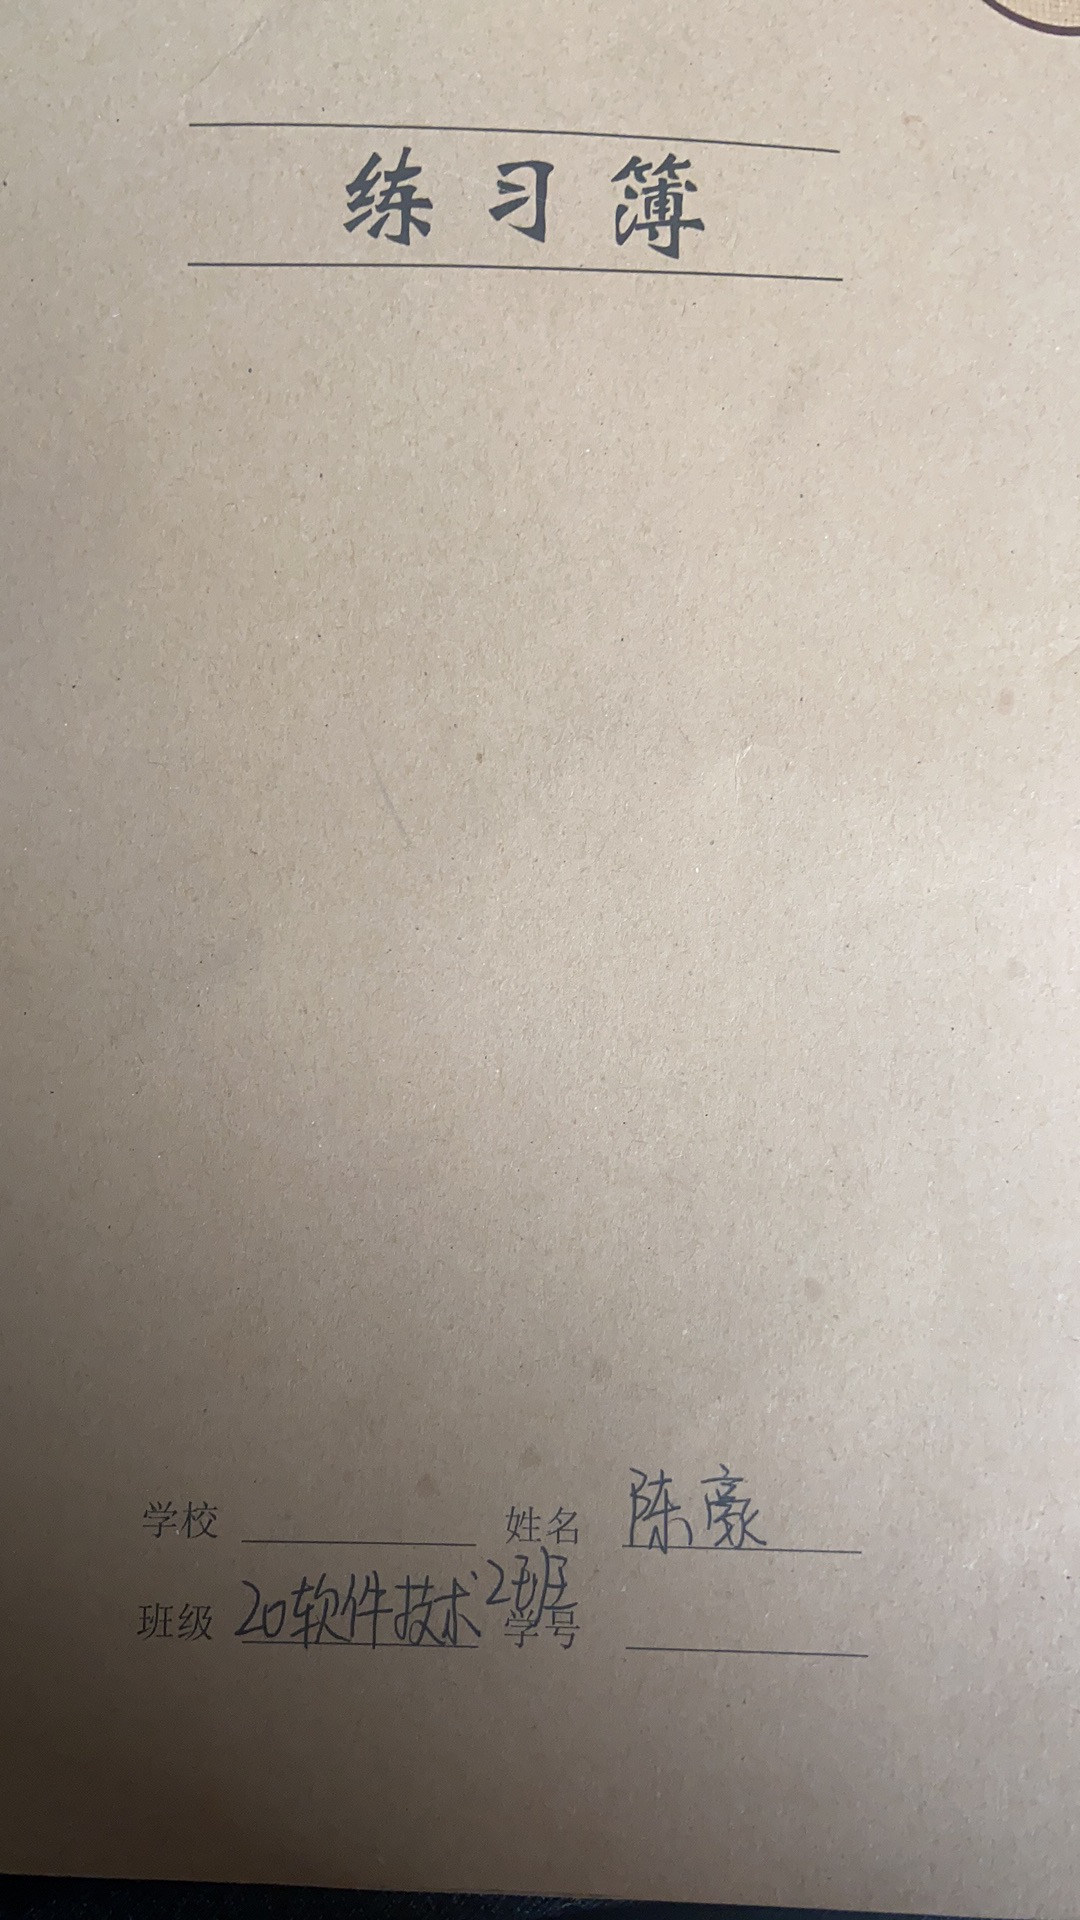 练习簿
学校 姓名 陈豪
班级 20软件技术2班 学号